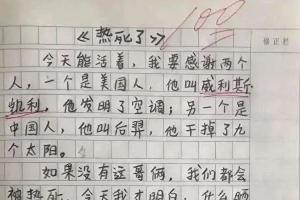 100
《热死了》
修正栏
今天能活着，我要感谢两个
人，一个是美国人，他叫威利斯
凯利，他发明了空调；另一个是
中国人，他叫后羿，他干掉了九
个太阳。
如果没有这哥俩，我们都会
被热死，今天我才明白，什么晒